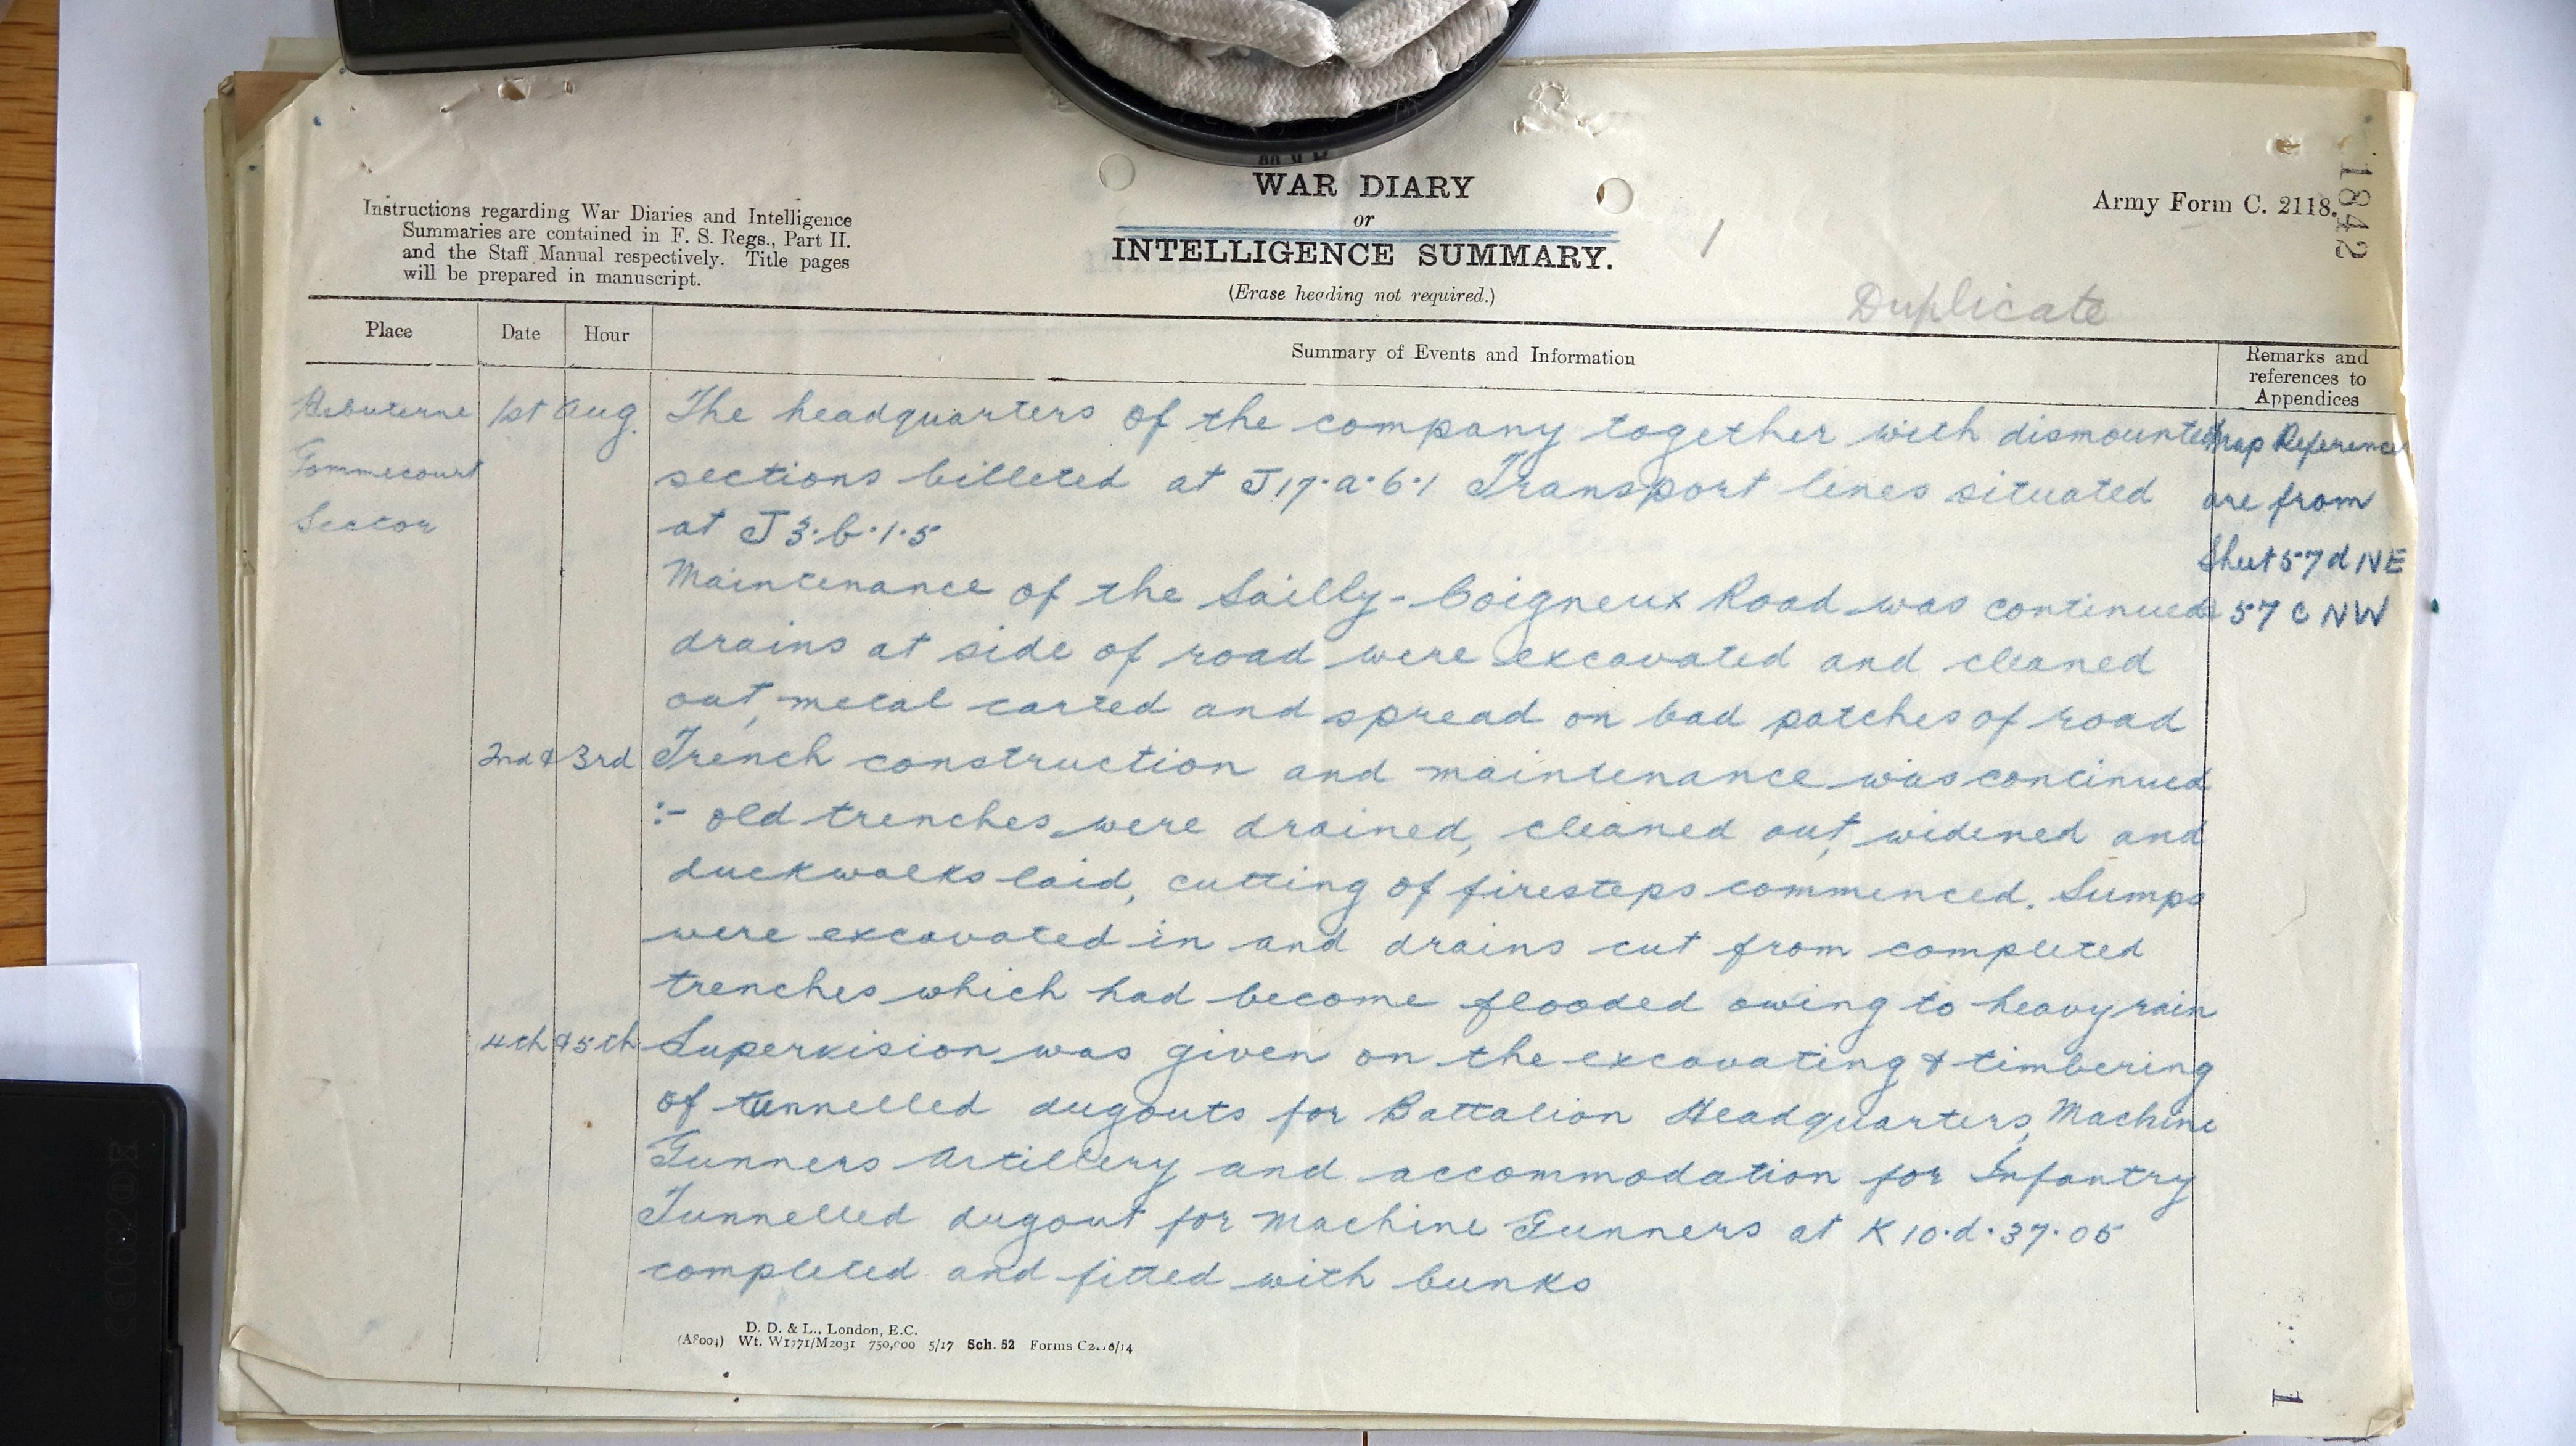 WAR DIARY
or
INTELLIGENCE SUMMARY.
(Erase heading not required.)
Instructions regarding War Diaries and Intelligence
Summaries are contained in F. S. Regs., Part II.
and the Staff Manual respectively. Title pages
will be prepared in manuscript.
Army Form C. 2118.
1842
1
Duplicate
Place
Date
Hour
Summary of Events and Information
Remarks and
references to
Appendices
Hebuterne
Gommecourt
Sector
1st Aug.
The headquarters of the company together with dismounted
sections billeted at J17.a.6.1 Transport lines situated
at J3.b.1.5
Maintenance of the Sailly-Coigneux Road was continued
drains at side of road were excavated and cleaned
out, metal carted and spread on bad patches of road
Map Reference
are from
Sheet 57d NE
57 C NW
2nd & 3rd
Trench construction and maintenance was continued
:- old trenches were drained, cleaned out, widened and
duckwalks laid, cutting of firesteps commenced. Sumps
were excavated in and drains cut from completed
trenches which had become flooded owing to heavy rain
4th & 5th
Supervision was given on the excavating & timbering
of tunnelled dugouts for Battalion Headquarters, Machine
Gunners Artillery and accommodation for Infantry
Tunnelled dugout for Machine Gunners at K10.d.37.05
completed and fitted with bunks
D. D. & L., London, E.C.
Wt. W1771/M2031 750,000 5/17 Sch. 52 Forms
1